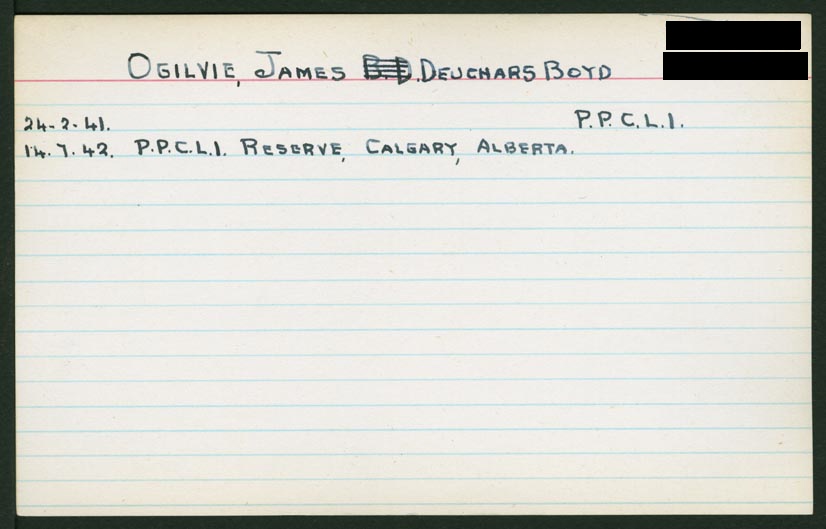 OGILVIE, JAMES B.D. DEUCHARS BOYD
24-2-41. P.P.C.L.I.
14.7.42. P.P.C.L.I. RESERVE, CALGARY, ALBERTA.